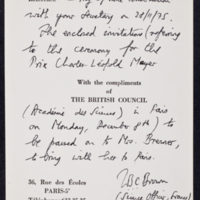 with your Secretary on 28/11/75.
The enclosed invitations (referring
to the ceremony for the
Prix Charles-Léopold Mayer
With the compliments
of
THE BRITISH COUNCIL
(Académie des Sciences) in Paris
on Monday, December 8th) to
be passed on to Mrs. Brenner,
to bring with her to Paris.
36, Rue des Écoles
PARIS-5e
(Science Officer, France)